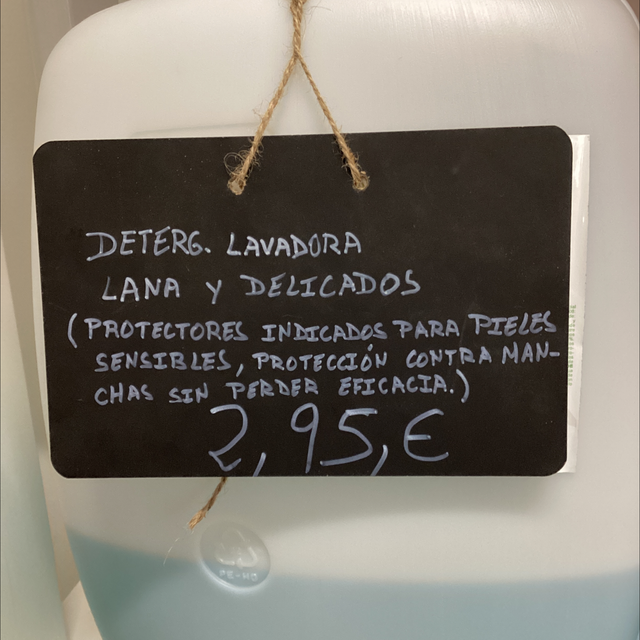 DETERG. LAVADORA
LANA Y DELICADOS
(PROTECTORES INDICADOS PARA PIELES
SENSIBLES, PROTECCIÓN CONTRA MAN-
CHAS SIN PERDER EFICACIA.)
2,95,€
PE-HD